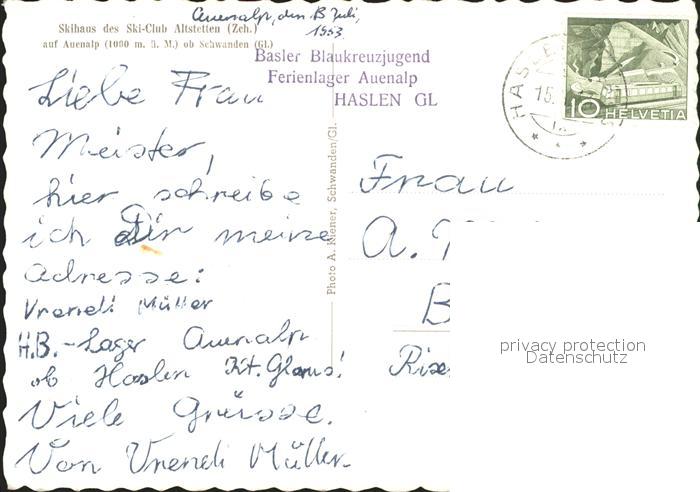 Auenalp, den 13 Juli,
1953
Skihaus des Ski-Club Altstetten (Zch.)
auf Auenalp (1000 m. ü. M.) ob Schwanden (Gl.)
Basler Blaukreuzjugend
Ferienlager Auenalp
HASLEN GL
Liebe Frau
Meister,
hier schreibe
ich Dir meine
Adresse:
Vreneli Müller
H.B.-Lager Auenalp
ob Haslen Kt. Glarus!
Viele Grüsse.
Von Vreneli Müller.
Photo A. Kiener, Schwanden/Gl.
HASLE
15.
10 HELVETIA
Frau
A.
B
privacy protection
Datenschutz